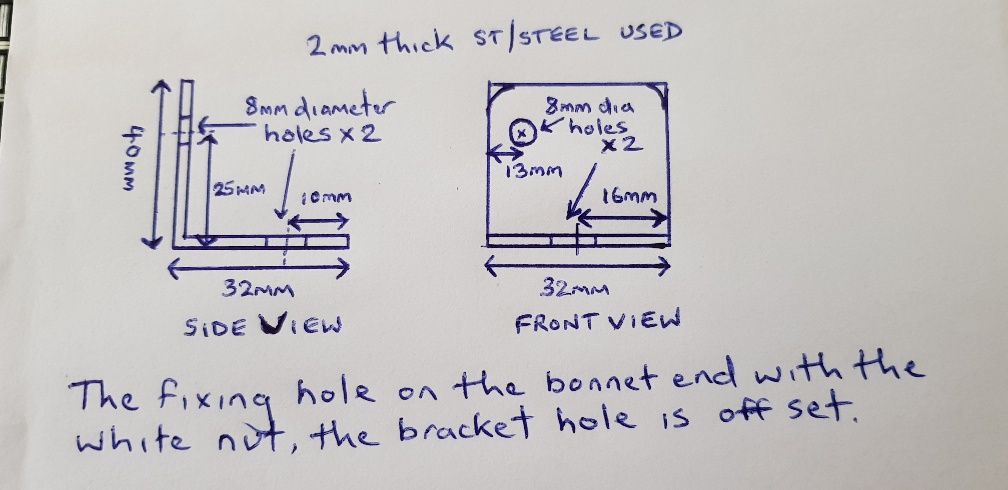 2mm thick ST/STEEL USED
8mm diameter
holes x 2
40mm
25mm
10mm
32mm
SIDE VIEW
8mm dia
holes
x 2
13mm
16mm
32mm
FRONT VIEW
The fixing hole on the bonnet end with the
white nut, the bracket hole is off set.